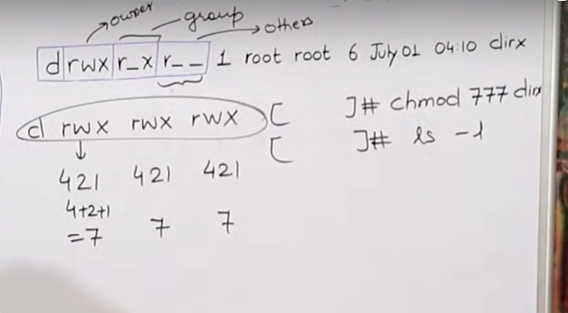 owner group others
drwxr_xr__ 1 root root 6 July 01 04:10 dirx
d rwx rwx rwx [ ]# chmod 777 dirx
[ ]# ls -l
421 421 421
4+2+1
=7 7 7